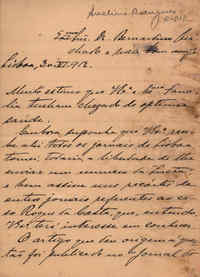 Avelino Rodrigues
Exmo. Sr. Bernardino Ma-
chado e meu
Lisboa, 20.XI.912.
Muito estimo que V. Exª e Exma Famí-
lia tenham chegado de optima
saude.
Embora suponha que V. Exª rece-
be ahi todos os jornais de Lisboa
tomei, todavia, a liberdade de lhe
enviar um numero da Lucta,
e bem assim uns recortes de
outros jornais referentes ao ca-
so Roque da Costa, que, entendo,
V. Exª terá interesse em conhecer.
O artigo que deu origem á ques-
tão foi publicado no Jornal do